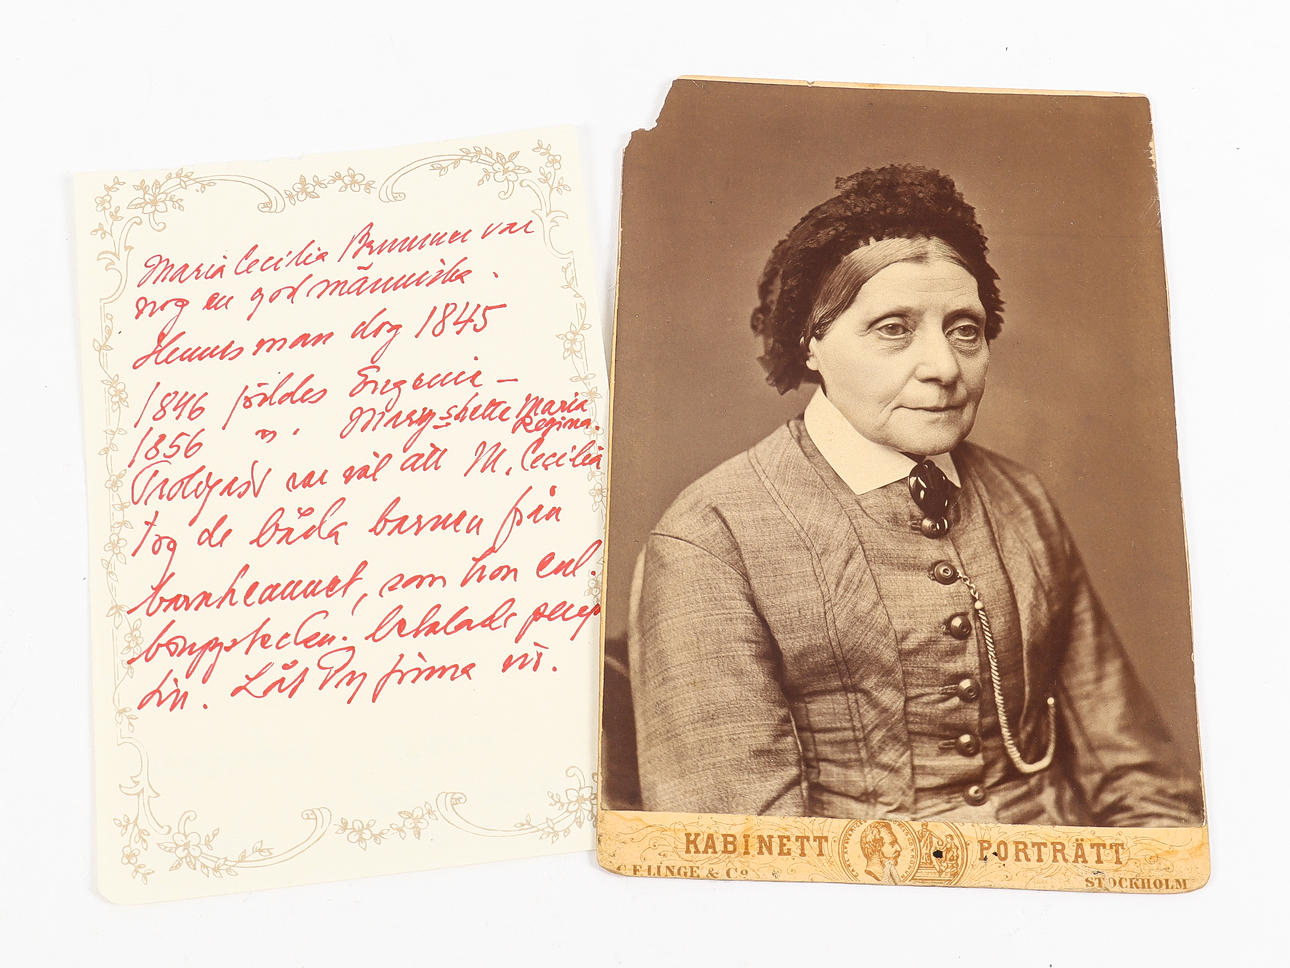 Maria Cecilia Brummer var
nog en god människa.
Hennes man dog 1845
1846 föddes Eugenie –
1856 " . Mary shette Maria
Regina.
Troligast var väl att M. Cecilia
tog de båda barnen från
barnhemmet, som hon enl.
betalade
Låt Py finna ut.
KABINETT PORTRÄTT
C F LINGE & Co STOCKHOLM